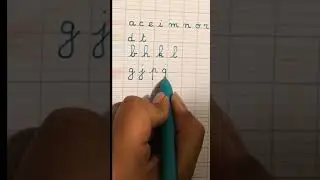 a c e i m n o r
d t
b h k l
g j p q
g j